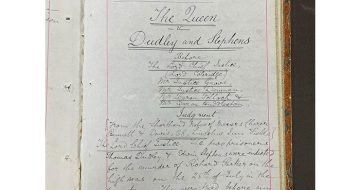 The Queen
v
Dudley and Stephens
Before
The Lord Chief Justice
(Lord Coleridge)
Mr Justice Grove
Mr Justice Denman
Mr Baron Pollock &
Mr Baron Huddleston
Judgment
From the Shorthand Notes of Messrs
The Lord Chief Justice The two prisoners
Thomas Dudley & Edwin Stephens were indicted
for the murder of Richard Parker on the
high seas on the 25th of July in the